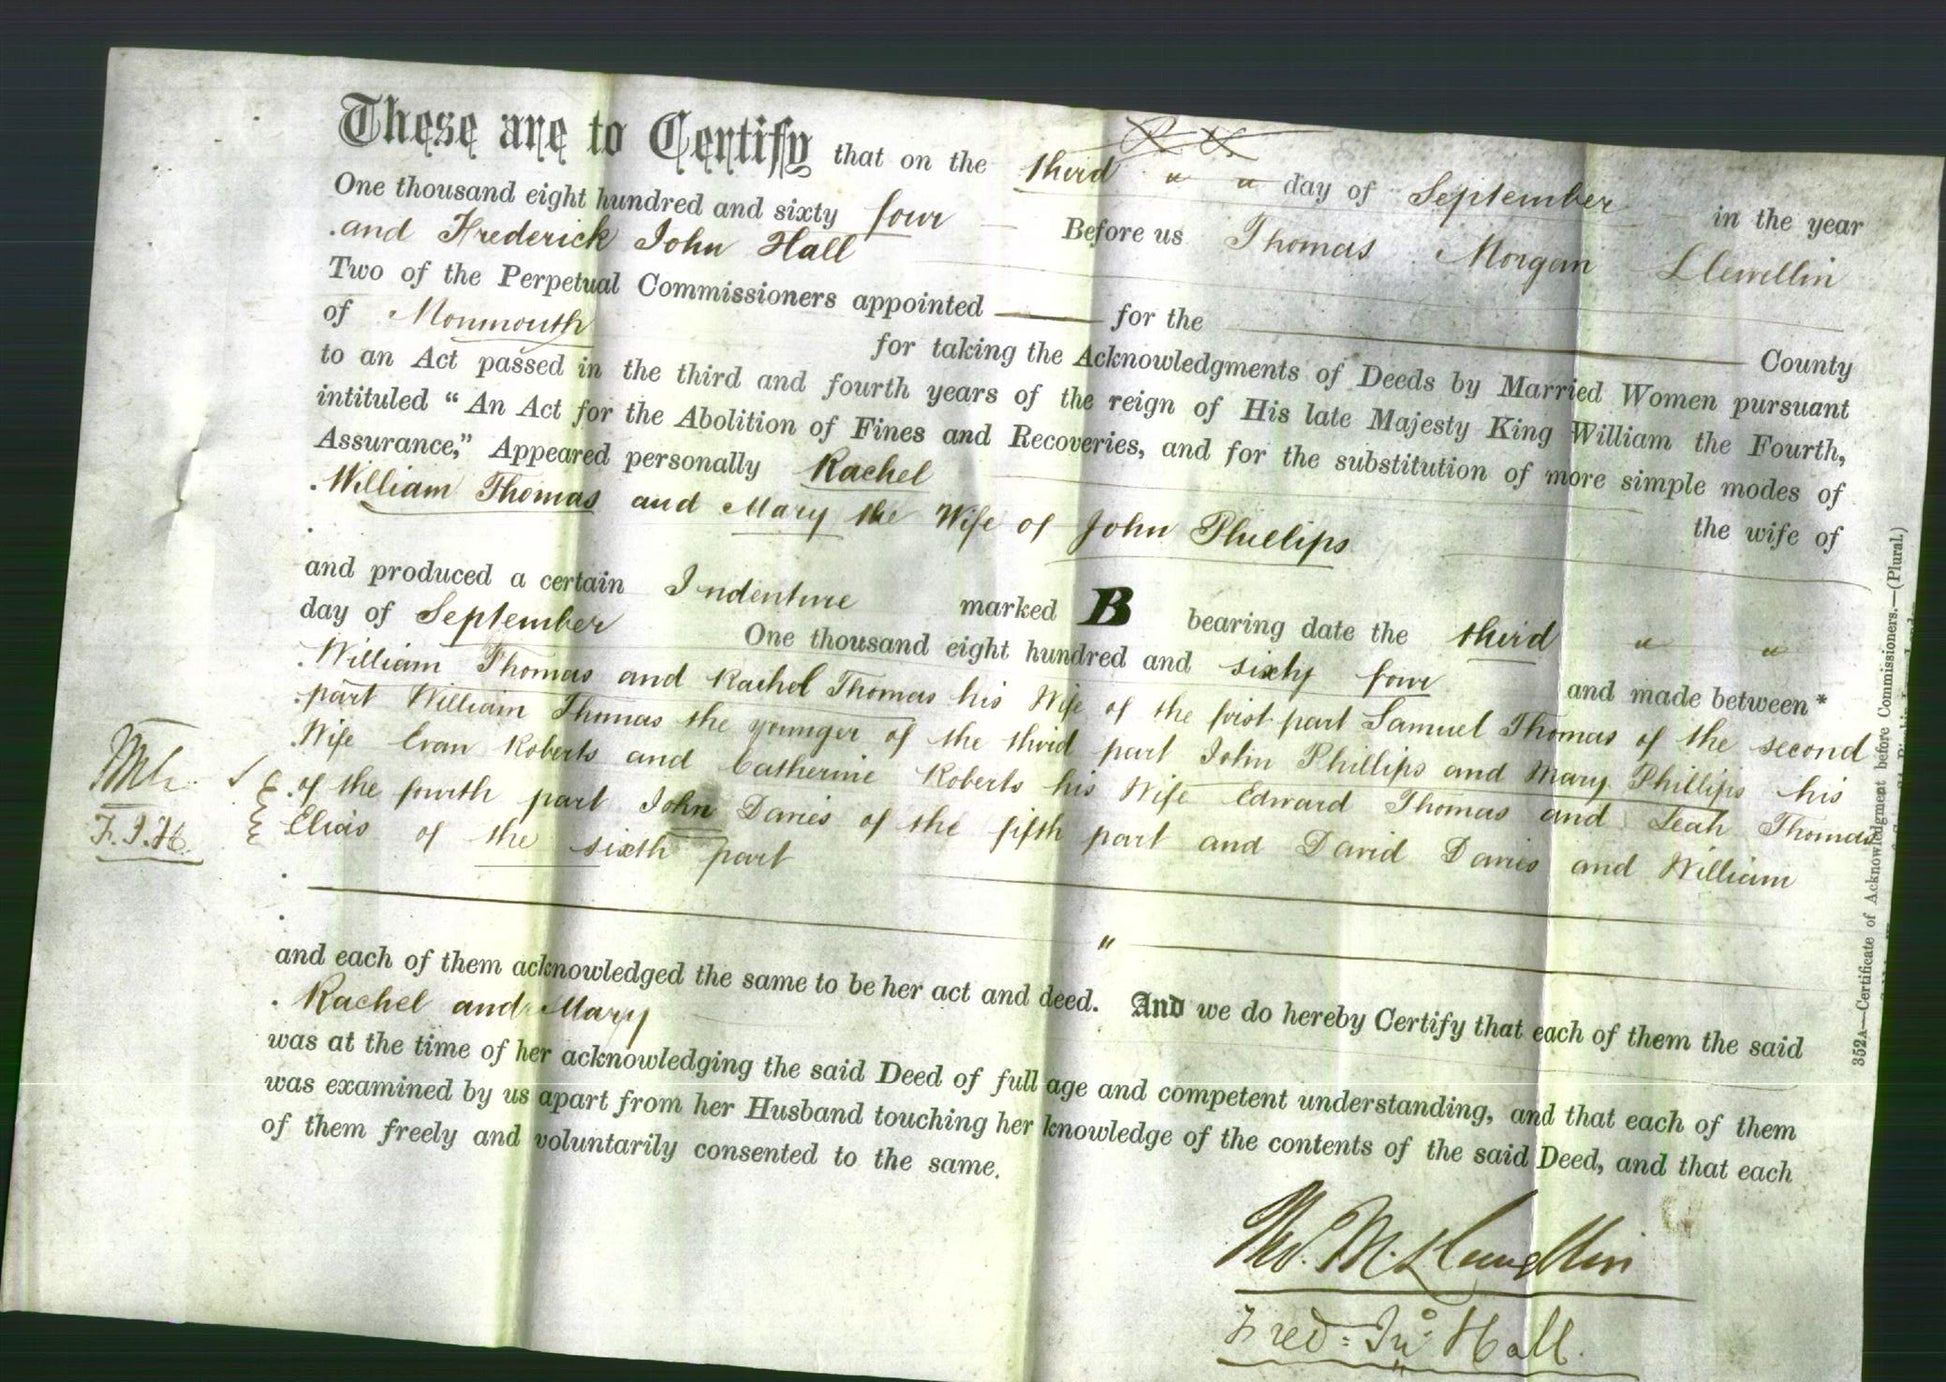 These are to Certify that on the third " " day of September in the year
One thousand eight hundred and sixty four Before us Thomas Morgan Llewellin
and Frederick John Hall
Two of the Perpetual Commissioners appointed for the County
of Monmouth for taking the Acknowledgments of Deeds by Married Women pursuant
to an Act passed in the third and fourth years of the reign of His late Majesty King William the Fourth,
intituled “An Act for the Abolition of Fines and Recoveries, and for the substitution of more simple modes of
Assurance,” Appeared personally Rachel the wife of
William Thomas and Mary the Wife of John Phillips
and produced a certain Indenture marked B bearing date the third " "
day of September One thousand eight hundred and sixty four and made between*
William Thomas and Rachel Thomas his Wife of the first part Samuel Thomas of the second
part William Thomas the younger of the third part John Phillips and Mary Phillips his
Wife Evan Roberts and Catherine Roberts his Wife Edward Thomas and Leah Thomas
of the fourth part John Davies of the fifth part and David Davies and William
Elias of the sixth part
"
and each of them acknowledged the same to be her act and deed. And we do hereby Certify that each of them the said
Rachel and Mary
was at the time of her acknowledging the said Deed of full age and competent understanding, and that each of them
was examined by us apart from her Husband touching her knowledge of the contents of the said Deed, and that each
of them freely and voluntarily consented to the same.
Tho. M. Llewellin
Fred: Jno: Hall.
F.J.H.
352A—Certificate of Acknowledgment before Commissioners.—(Plural.)